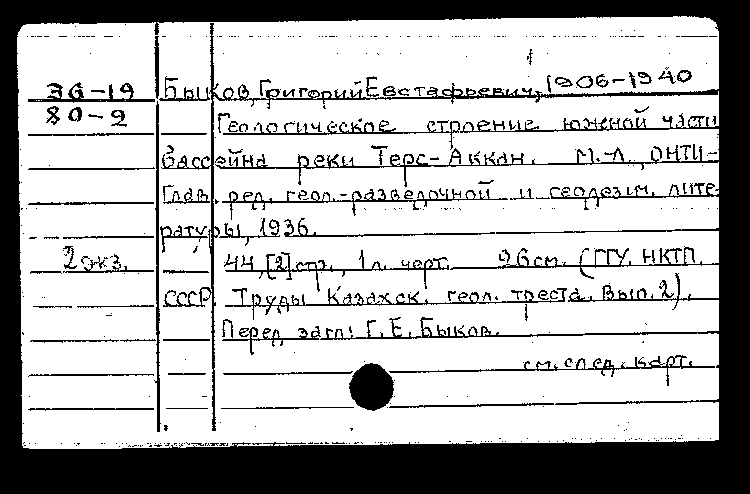 36-19 Быков, Григорий Евстафьевич, 1906-1940
80-2
Геологическое строение южной части
бассейна реки Терс-Аккан. М.-Л., ОНТИ-
Глав. ред. геол.-разведочной и геодезич. лите-
ратуры, 1936.
2 экз. 44,[2]стр., 1 л. черт. 26см. (ГГУ. НКТП.
СССР. Труды Казахск. геол. треста. Вып. 2).
Перед загл: Г. Е. Быков.
см. след. карт.